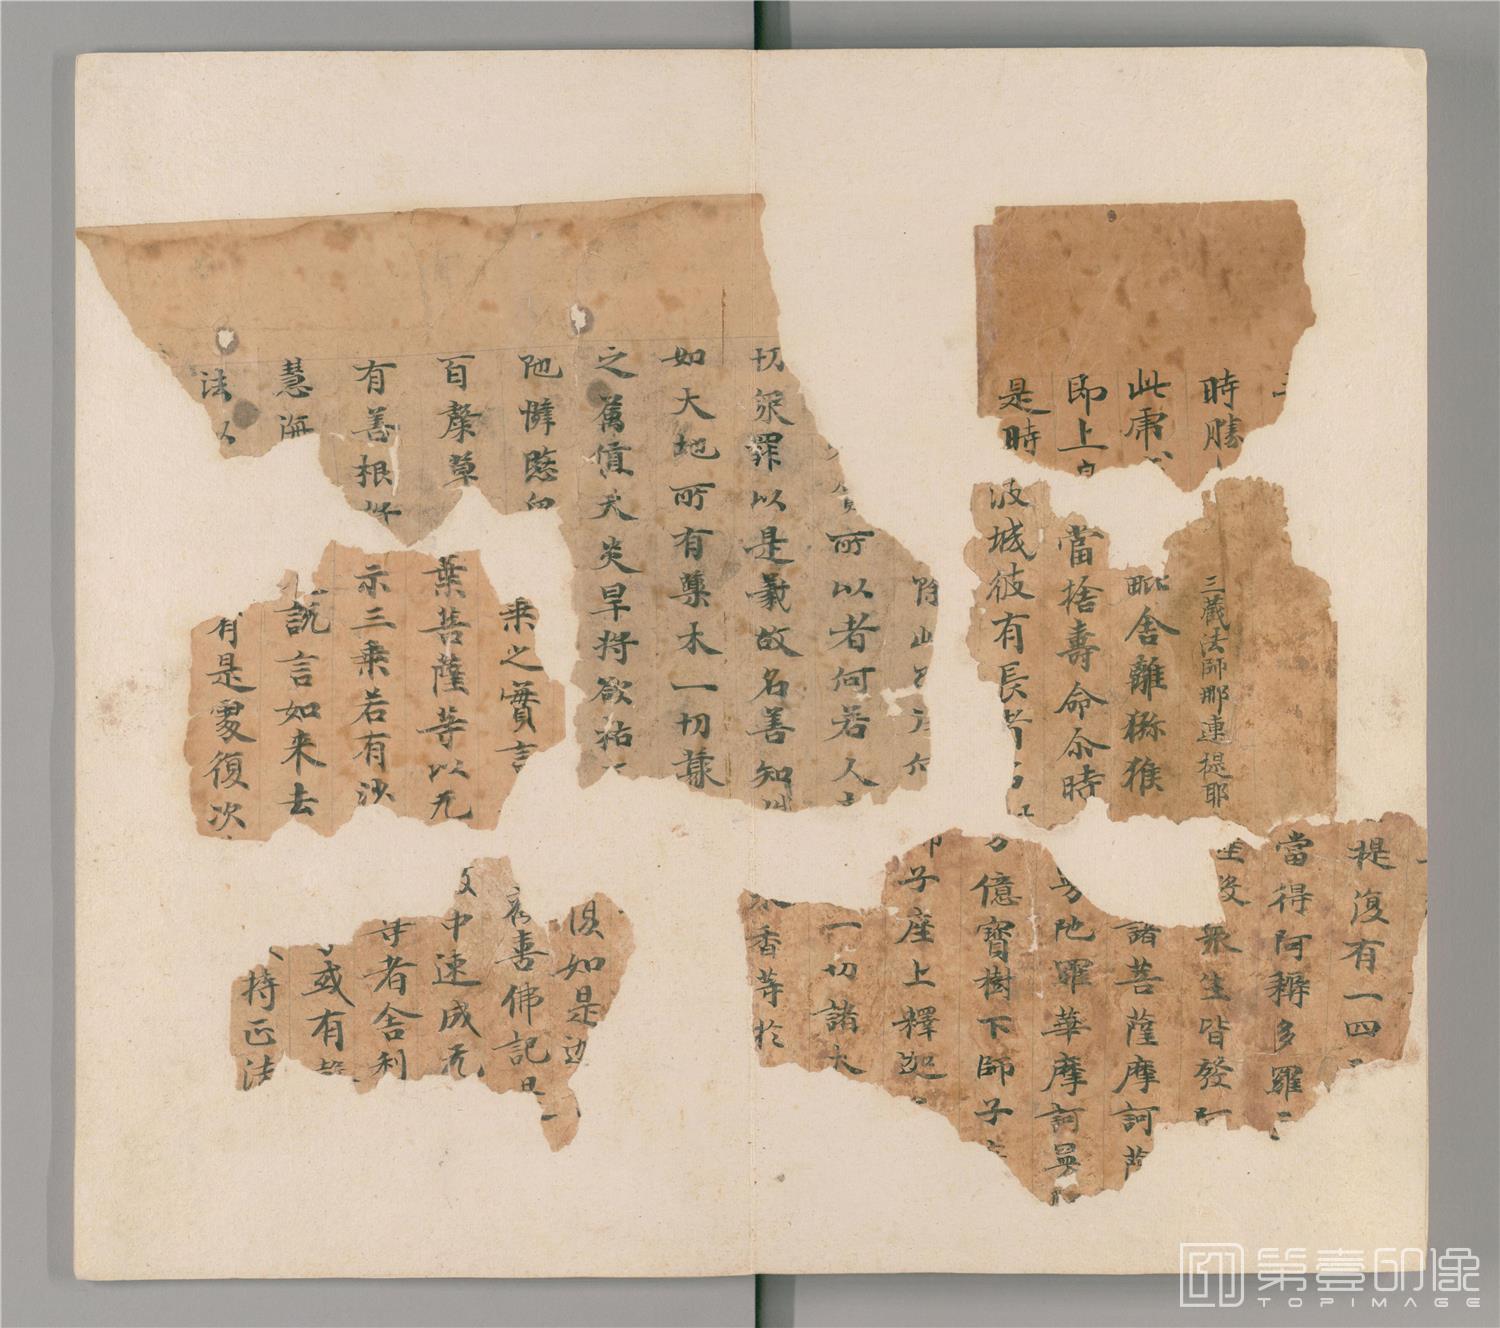 時勝
此
即上
是時
三藏法師那連提耶
毗舍離獼猴
當捨壽命尒時
波城彼有長者
提復有一四
當得阿耨多羅
衆生皆發阿
諸菩薩摩訶薩
曼陁羅華摩訶曼
億寶樹下師子
子座上釋迦
一切諸大
香等於
所以者何若人
切衆罪以是義故名善知
如大地所有藥木一切
之舊值天炎旱將欲枯
陁憐愍
百藥草
有善根
慧海
法以
乘之實言
葉菩薩等以无
示三乘若有沙
說言如來去
有是憂復次
如是
善佛記
中速成无
者舍利
或有
持正法
第壹印像
TOPIMAGE